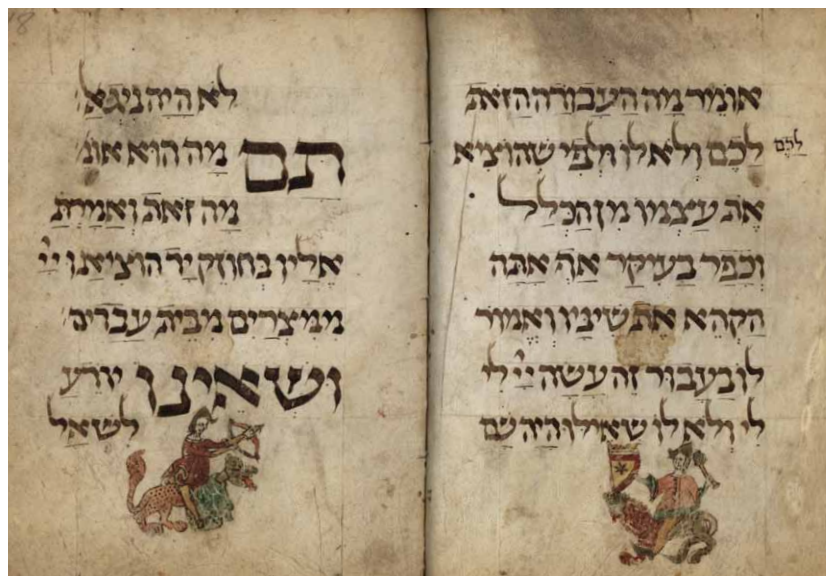 אומר מה העבודה הזאת
לכם ולא לו ולפי שהוציא
לכם
את עצמו מן הכלל
וכפר בעיקר אף אתה
הקהא את שיניו ואמור
לו בעבור זה עשה ייי לי
לי ולא לו שאילו היה שם
18
לא היה ניגאל
תם מה הוא אומ'
מה זאת ואמרת
אליו בחוזק יד הוציאנו ייי
ממצרים מבית עבדים
ושאינו יודע
לשאל